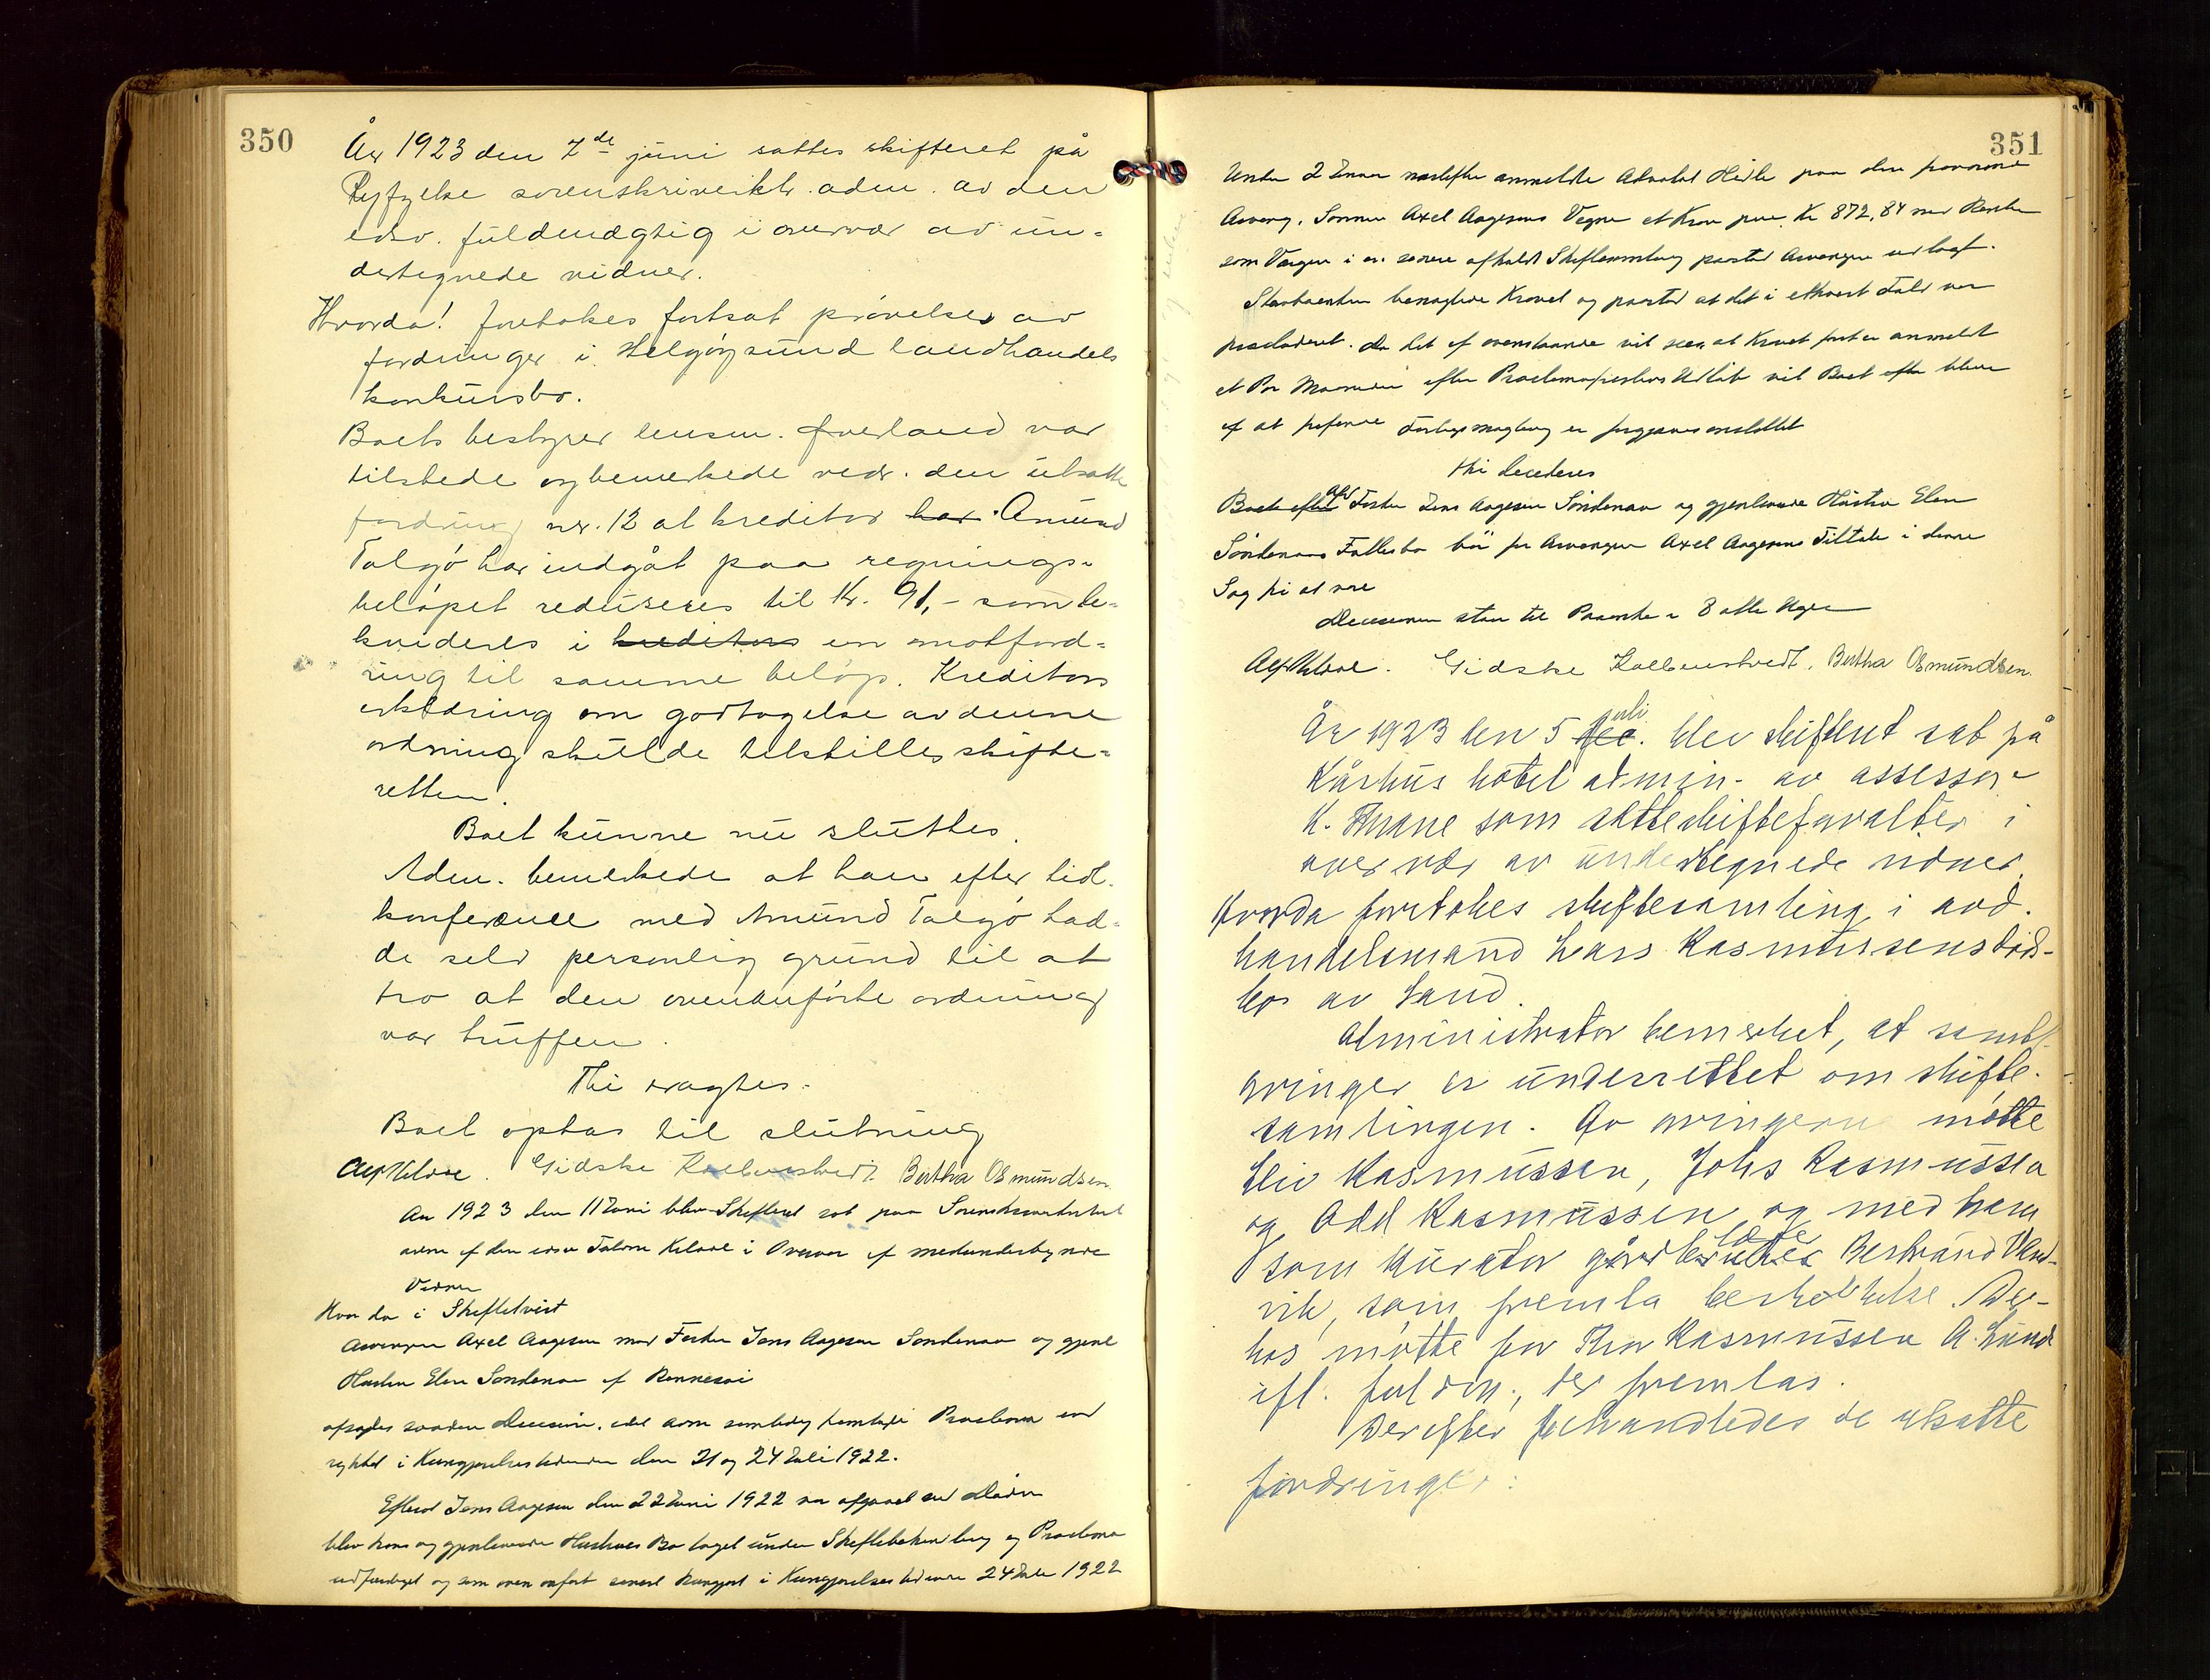 350
År 1923 den 7de juni sattes skifteret på
Ryfylke sorenskriverktr. adm. av den
edsv. fuldmægtig i overvær av un-
dertegnede vidner.
Hvorda! foretokes fortsat prøvelse av
fordringer i Helgøysund landhandels
konkursbo.
Boets bestyrer lensm. Øverland var
tilstede og bemerkede vedr. den utsatte
fordring nr. 12 at kreditor har Amund
Talgø har indgåt paa regnings-
beløpet reduseres til Kr. 91,- som li-
kvideres i kreditors en motford-
ring til samme beløp. Kreditors
erklæring om godtagelse av denne
ordning skulde tilstilles skifte-
retten.
Boet kunne nu sluttes.
Adm. bemerkede at han efter tidl.
konferanse med Amund Talgø had-
de selv personlig grund til at
tro at den ovenanførte ordning
var truffen.
Thi eragtes:
Boet optas til slutning
Alf Kelove. Gidske Kolbenstvedt. Bertha Osmundsen.
Aar 1923 den 11 Juni blev Skifteret sat paa Sorenskriverkontoret
adm af den edsv Fuldm Kelove i Overvær af medundertegnede
Vidner
Hvor da i Skiftetvist
Arvingen Axel Aagesen mod Faster Jens Aagesen Søndenaa og gjenl
Hustru Elen Søndenaa af Rennesøi
afsagdes saadan Decision. idet
rykket i Kungjørelsestidende den 21 og 24 Juli 1922.
Efterat Jens Aagesen den 22 Juni 1922 var afgaaet ved Døden
blev hans og gjenlevende Hustrues Bo taget under Skiftebehandling og Proclama
udfærdiget og som oven anført senest kungjort i Kungjørelsestidende 24 Juli 1922
351
Under 2 Januar næstefter anmeldte Advokat Hedle paa den
Arving, Sønnen Axel Aagesens Vegne et Krav paa Kr 872,84 med Renter
som Vergen i en senere afholdt Skiftesamling paastod Arvingen
benægtede Kravet og paastod at det i ethvert Fald var
præcluderet. Da det af ovenstaaende vil sees, at Kravet først er anmeldt
et Par Maaneder efter Proclamafristens Udløb vil Boet efter blive
af at frifinde Forligsmægling er forgjæves anstillet
thi decideres
Boet efter afd Fisker Jens Aagesen Søndenaa og gjenlevende Hustru Elen
Søndenaas Fællesbo bør for Arvingen Axel Aagesens Tiltale i denne
Sag fri at være
Decisionen staar til Paaanke i 8 otte Uger
Alf Kelove. Gidske Kolbenstvedt. Bertha Osmundsen.
År 1923 den 5 dec. juli blev skifteret sat på
Kårhus hotel admin. av assessor
K. Thrane som sætteskifteforvalter i
overvær av undertegnede vidner
Hvorda foretokes skiftesamling i avd.
handelsmand Lars Rasmussens døds-
bo av Sand.
Administrator bemerket, at samtl.
arvinger er underrettet om skifte-
samlingen. Av arvingerne møtte
Eliv Rasmussen, Johs Rasmussen
og Odd Rasmussen og med ham
som kurator gårdbruker Bertrand Vand-
vik, som fremla beskikkelse. Der-
hos møtte for Thor Rasmussen A. Lunde
ifl. fuldm., der fremlas.
Derefter behandledes de utsatte
fordringer: